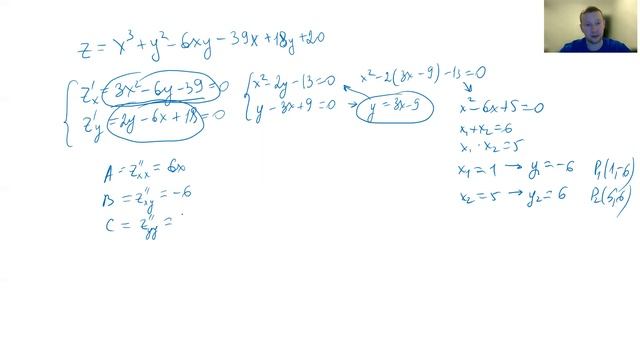 z = x³ + y² − 6xy − 39x + 18y + 20
z'ₓ = 3x² − 6y − 39 = 0
z'ᵧ = 2y − 6x + 18 = 0
x² − 2y − 13 = 0
y − 3x + 9 = 0 → y = 3x − 9
x² − 2(3x − 9) − 13 = 0
x² − 6x + 5 = 0
x₁ + x₂ = 6
x₁ · x₂ = 5
x₁ = 1 → y₁ = −6 P₁(1,−6)
x₂ = 5 → y₂ = 6 P₂(5,6)
A = z''ₓₓ = 6x
B = z''ₓᵧ = −6
C = z''ᵧᵧ =